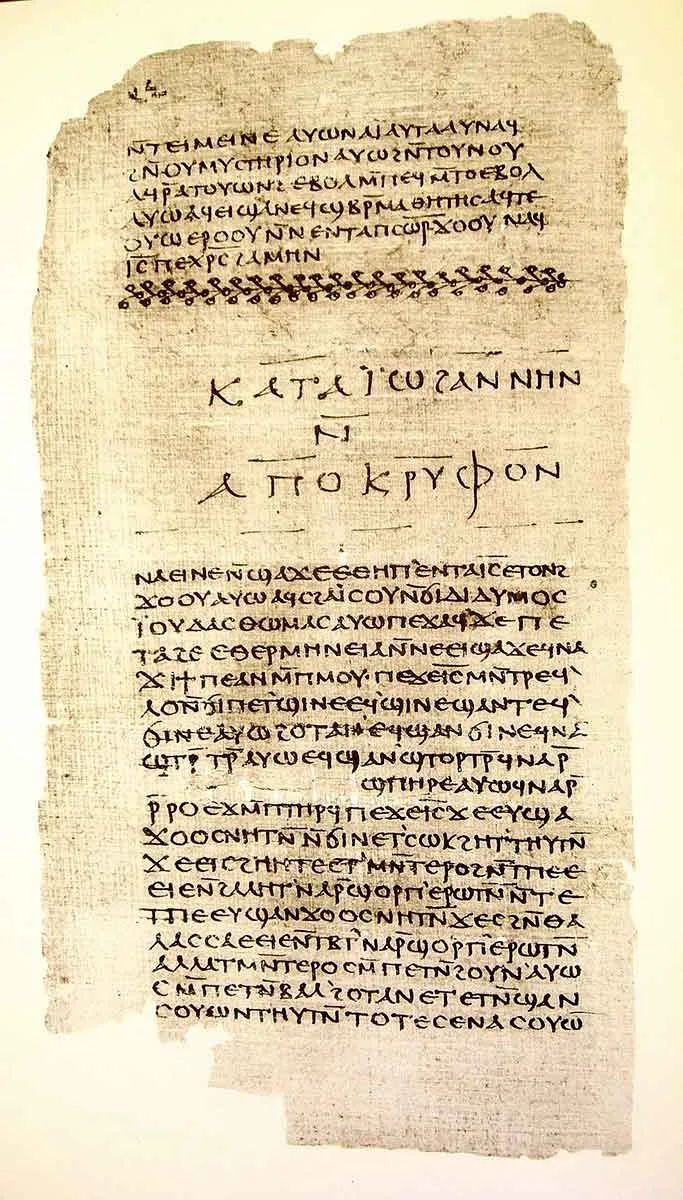 ⲛ̄ⲧⲉⲓⲙⲉⲓⲛⲉ ⲁⲩⲱ ⲛⲁⲓ ⲁⲩⲧⲁⲁⲩ ⲛⲁϥ
ϩⲛ̄ ⲟⲩⲙⲩⲥⲧⲏⲣⲓⲟⲛ ⲁⲩⲱ ϩⲛ̄ⲧⲟⲩⲛⲟⲩ
ⲁϥⲣ̄ⲁⲧⲟⲩⲱⲛϩ ⲉⲃⲟⲗ ⲙ̄ⲡⲉϥⲙ̄ⲧⲟ ⲉⲃⲟⲗ
ⲁⲩⲱ ⲁϥⲉⲓ ϣⲁ ⲛⲉϥϣⲃⲣ̄ⲙⲁⲑⲏⲧⲏⲥ ⲁϥⲧⲉ
ⲟⲩⲱ ⲉⲣⲟⲟⲩ ⲛ̄ⲛⲉⲛⲧⲁⲡⲥⲱ̄ⲣ̄ ϫⲟⲟⲩ ⲛⲁϥ
ⲓ̄ⲥ̄ ⲡⲉⲭⲣ̄ⲥ̄ ϩⲁⲙⲏⲛ
ⲕⲁⲧⲁ ⲓ̈ⲱϩⲁⲛⲛⲏⲛ
ⲛ̄
ⲁⲡⲟⲕⲣⲩⲫⲟⲛ
ⲛⲁⲉⲓ ⲛⲉ ⲛ̄ϣⲁϫⲉ ⲉⲑⲏⲡ ⲉⲛⲧⲁⲓ̄ⲥ̄ ⲉⲧⲟⲛϩ
ϫⲟⲟⲩ ⲁⲩⲱ ⲁϥⲥϩⲁⲓ̈ⲥⲟⲩ ⲛ̄ϭⲓ ⲇⲓⲇⲩⲙⲟⲥ
ⲓ̈ⲟⲩⲇⲁⲥ ⲑⲱⲙⲁⲥ ⲁⲩⲱ ⲡⲉϫⲁϥ ϫⲉ ⲡⲉ
ⲧⲁϩⲉ ⲉⲑⲉⲣⲙⲏⲛⲉⲓⲁ ⲛ̄ⲛⲉⲉⲓϣⲁϫⲉ ϥⲛⲁ
ϫⲓ ϯⲡⲉ ⲁⲛ ⲙ̄ⲡⲙⲟⲩ ⲡⲉϫⲉ ⲓ̄ⲥ̄ ⲙⲛ̄ⲧⲣⲉϥ
ⲗⲟ ⲛ̄ϭⲓ ⲡⲉⲧϣⲓⲛⲉ ⲉϥϣⲓⲛⲉ ϣⲁⲛⲧⲉϥ
ϭⲓⲛⲉ ⲁⲩⲱ ϩⲟⲧⲁⲛ ⲉϥϣⲁⲛϭⲓⲛⲉ ϥⲛⲁ
ϣⲧⲣ̄ⲧⲣ̄ ⲁⲩⲱ ⲉϥϣⲁⲛϣⲧⲟⲣⲧⲣ̄ ϥⲛⲁⲣ̄
ϣⲡⲏⲣⲉ ⲁⲩⲱ ϥⲛⲁⲣ̄
ⲣ̄ⲣⲟ ⲉϫⲙ̄ ⲡⲧⲏⲣϥ ⲡⲉϫⲉ ⲓ̄ⲥ̄ ϫⲉ ⲉⲩϣⲁ
ϫⲟⲟⲥ ⲛⲏⲧⲛ̄ ⲛ̄ϭⲓ ⲛⲉⲧⲥⲱⲕ ϩⲏⲧ ⲧⲏⲩⲧⲛ̄
ϫⲉ ⲉⲓⲥϩⲏⲏⲧⲉ ⲉⲧⲙⲛ̄ⲧⲉⲣⲟ ϩⲛ̄ ⲧⲡⲉ ⲉ
ⲉⲓⲉ ⲛ̄ϩⲁⲗⲏⲧ ⲛⲁⲣ̄ ϣⲟⲣⲡ ⲉⲣⲱⲧⲛ̄ ⲛ̄ⲧⲉ
ⲧⲡⲉ ⲉⲩϣⲁⲛϫⲟⲟⲥ ⲛⲏⲧⲛ̄ ϫⲉ ⲥϩⲛ̄ ⲑⲁ
ⲗⲁⲥⲥⲁ ⲉⲉⲓⲉ ⲛ̄ⲧⲃⲧ ⲛⲁⲣ̄ ϣⲟⲣⲡ ⲉⲣⲱⲧⲛ̄
ⲁⲗⲗⲁ ⲧⲙⲛ̄ⲧⲉⲣⲟ ⲥⲙ̄ⲡⲉⲧⲛ̄ϩⲟⲩⲛ ⲁⲩⲱ
ⲥⲙ̄ⲡⲉⲧⲛ̄ⲃⲁⲗ ϩⲟⲧⲁⲛ ⲉⲧⲉⲧⲛ̄ϣⲁⲛ
ⲥⲟⲩⲱⲛ ⲧⲏⲩⲧⲛ̄ ⲧⲟⲧⲉ ⲥⲉⲛⲁⲥⲟⲩⲱ